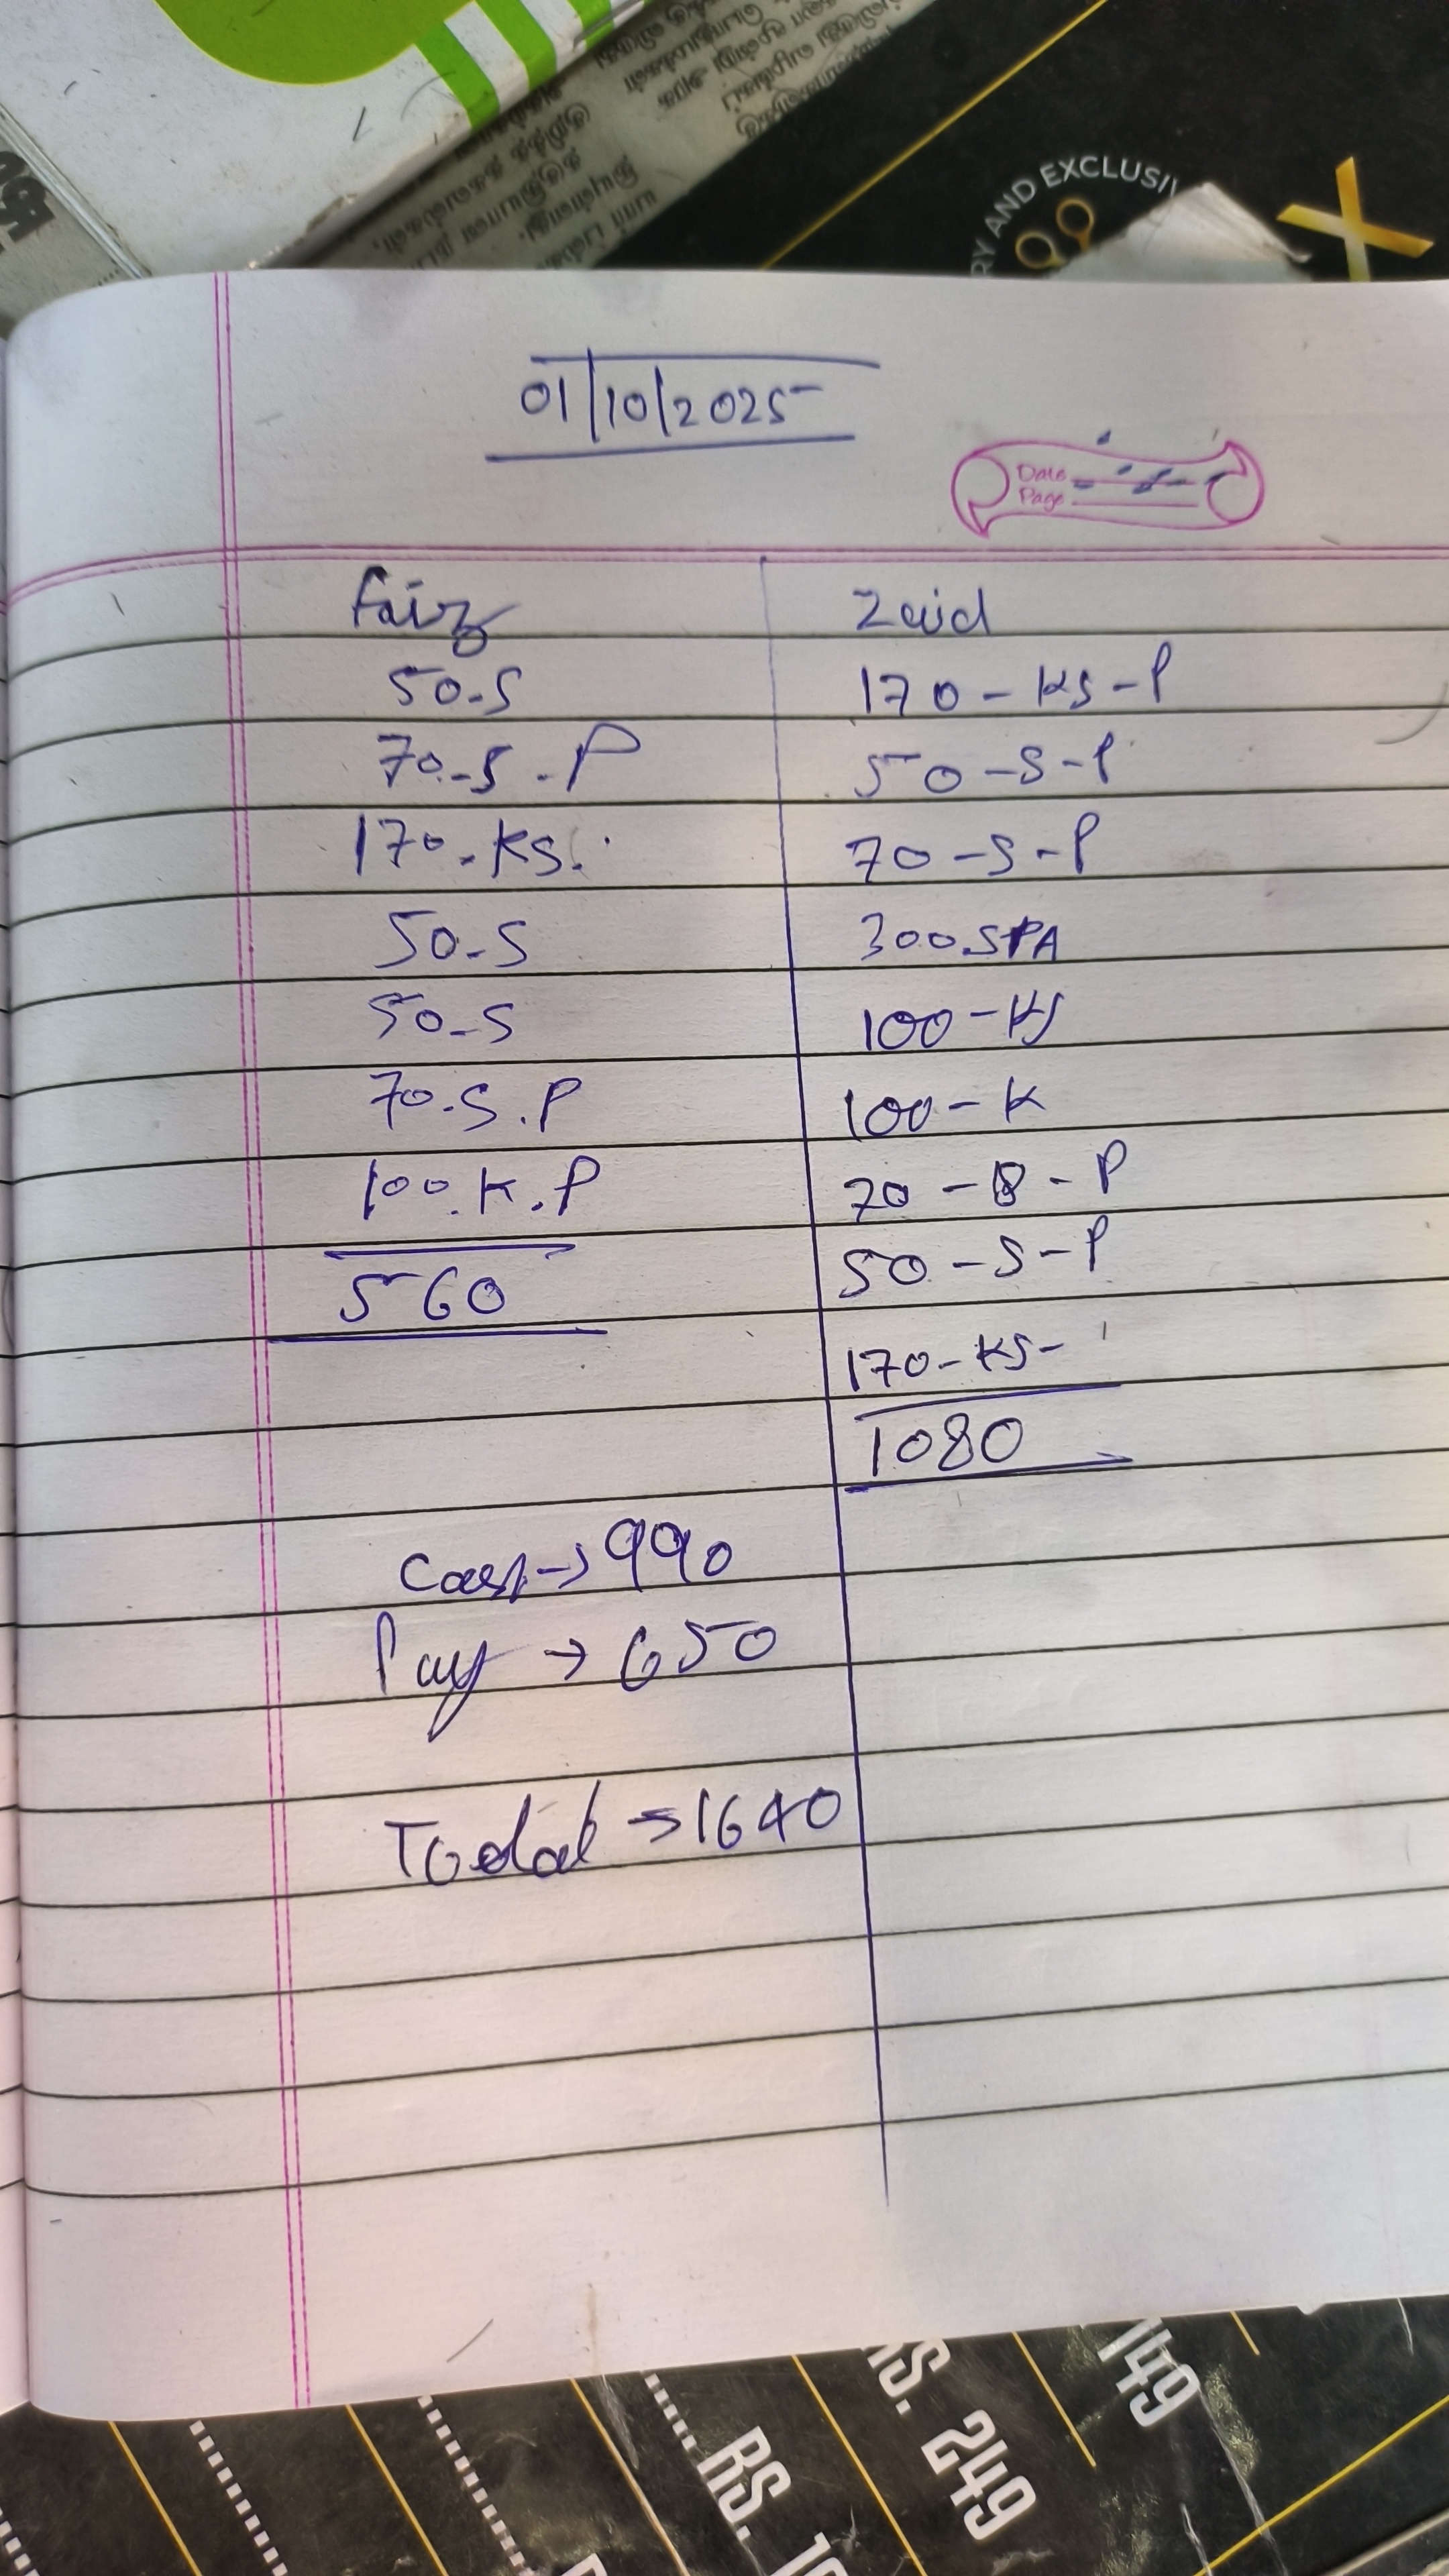 RY AND EXCLUSI
01/10/2025
Date
Page
Faiz
50-S
70-S-P
170-KS.
50-S
50-S
70-S.P
100.K.P
560
Zaid
170-KS-P
50-S-P
70-S-P
300.SPA
100-KS
100-K
70-B-P
50-S-P
170-KS-
1080
Cash→990
Pay→650
Todal→1640
149
RS. 249
RS.